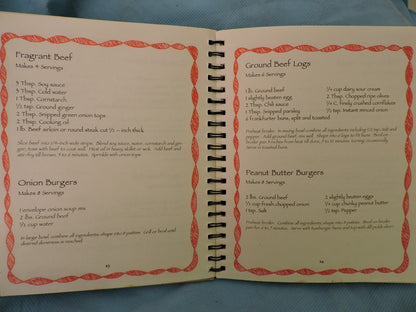 Fragrant Beef
Makes 4 Servings
3 Tbsp. Soy sauce
3 Tbsp. Cold water
1 Tbsp. Cornstarch
1/2 tsp. Ground ginger
2 Tbsp. Snipped green onion tops
2 Tbsp. Cooking oil
1 Lb. Beef sirloin or round steak cut 1/2 - inch thick
Slice beef into 1/4-inch-wide strips. Blend soy sauce, water, cornstarch and
ginger; toss with beef to coat well. Heat oil in heavy skillet or wok. Add beef and
stir-fry till brown, 3 to 5 minutes. Sprinkle with onion tops.
Onion Burgers
Makes 8 Servings
1 envelope onion soup mix
2 Lbs. Ground beef
1/2 cup water
In large bowl, combine all ingredients; shape into 8 patties. Grill or broil until
desired doneness is reached.
Ground Beef Logs
Makes 6 Servings
1 Lb. Ground beef
1 slightly beaten egg
2 Tbsp. Chili sauce
1 Tbsp. Snipped parsley
6 frankfurter buns, split and toasted
1/4 cup dairy sour cream
2 Tbsp. Chopped ripe olives
1/4 C. finely crushed cornflakes
1/2 Tbsp. Instant minced onion
Preheat broiler. In mixing bowl combine all ingredients including 1/2 tsp. salt and
pepper. Add ground beef, mix well. Shape into 6 logs to fit buns. Broil
turning occasionally.
Peanut Butter Burgers
Makes 8 Servings
2 Lbs. Ground beef
1/2 cup fresh chopped onion
1 tsp. Salt
2 slightly beaten eggs
1/4 cup chunky peanut butter
1/2 tsp. Pepper
Preheat broiler. Combine all ingredients; shape into 8 patties. Broil or broiler
pan for 6 to 7 minutes. Serve with hamburger buns and top with dill pickle slices.